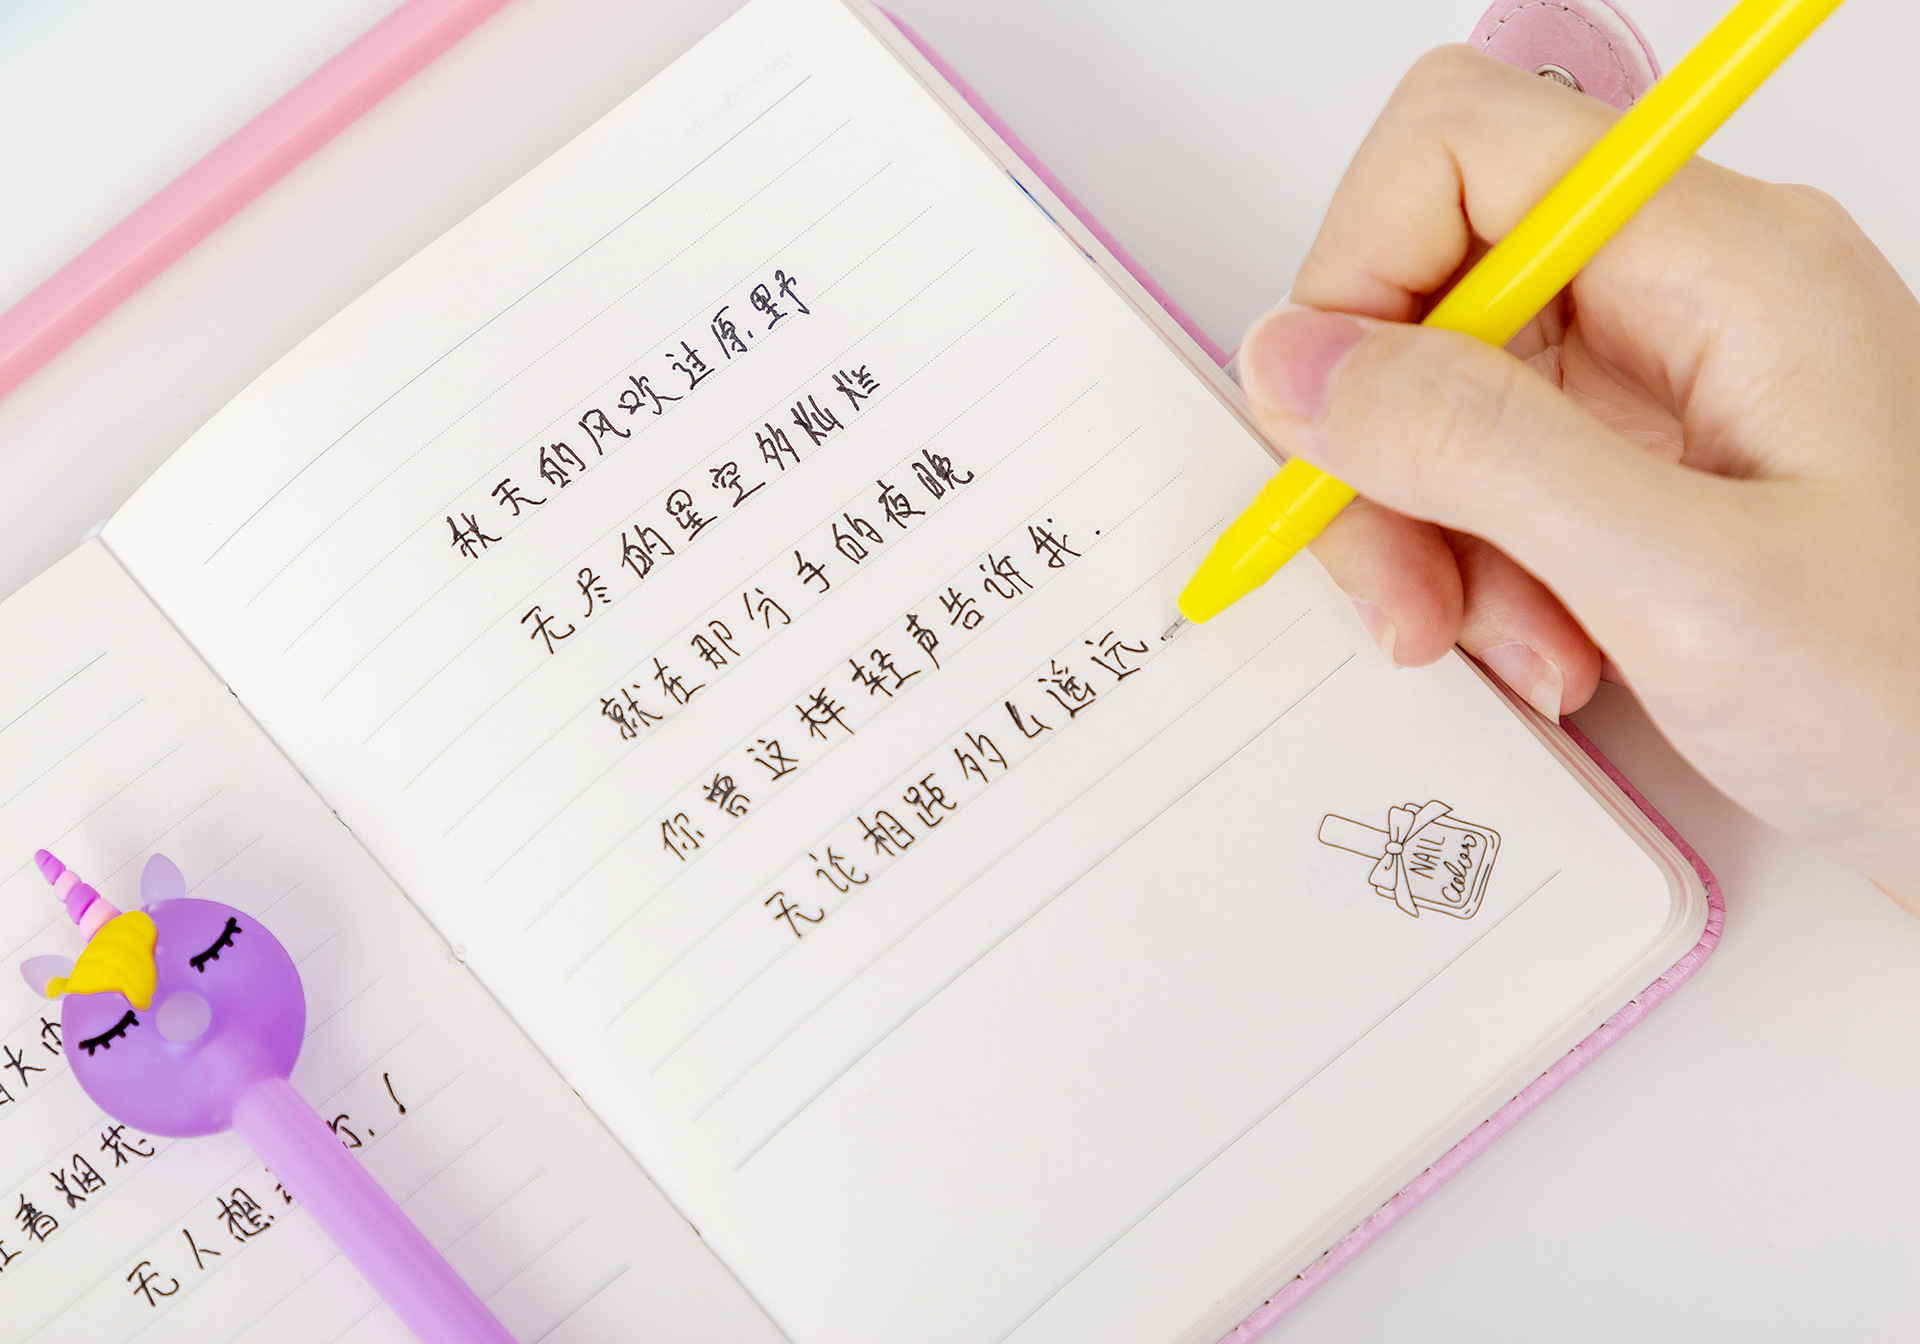 秋天的风吹过原野
无尽的星空多灿烂
就在那分手的夜晚
你曾这样轻声告诉我.
无论相距的么遥远
着烟花
无人想
NAIL
Color